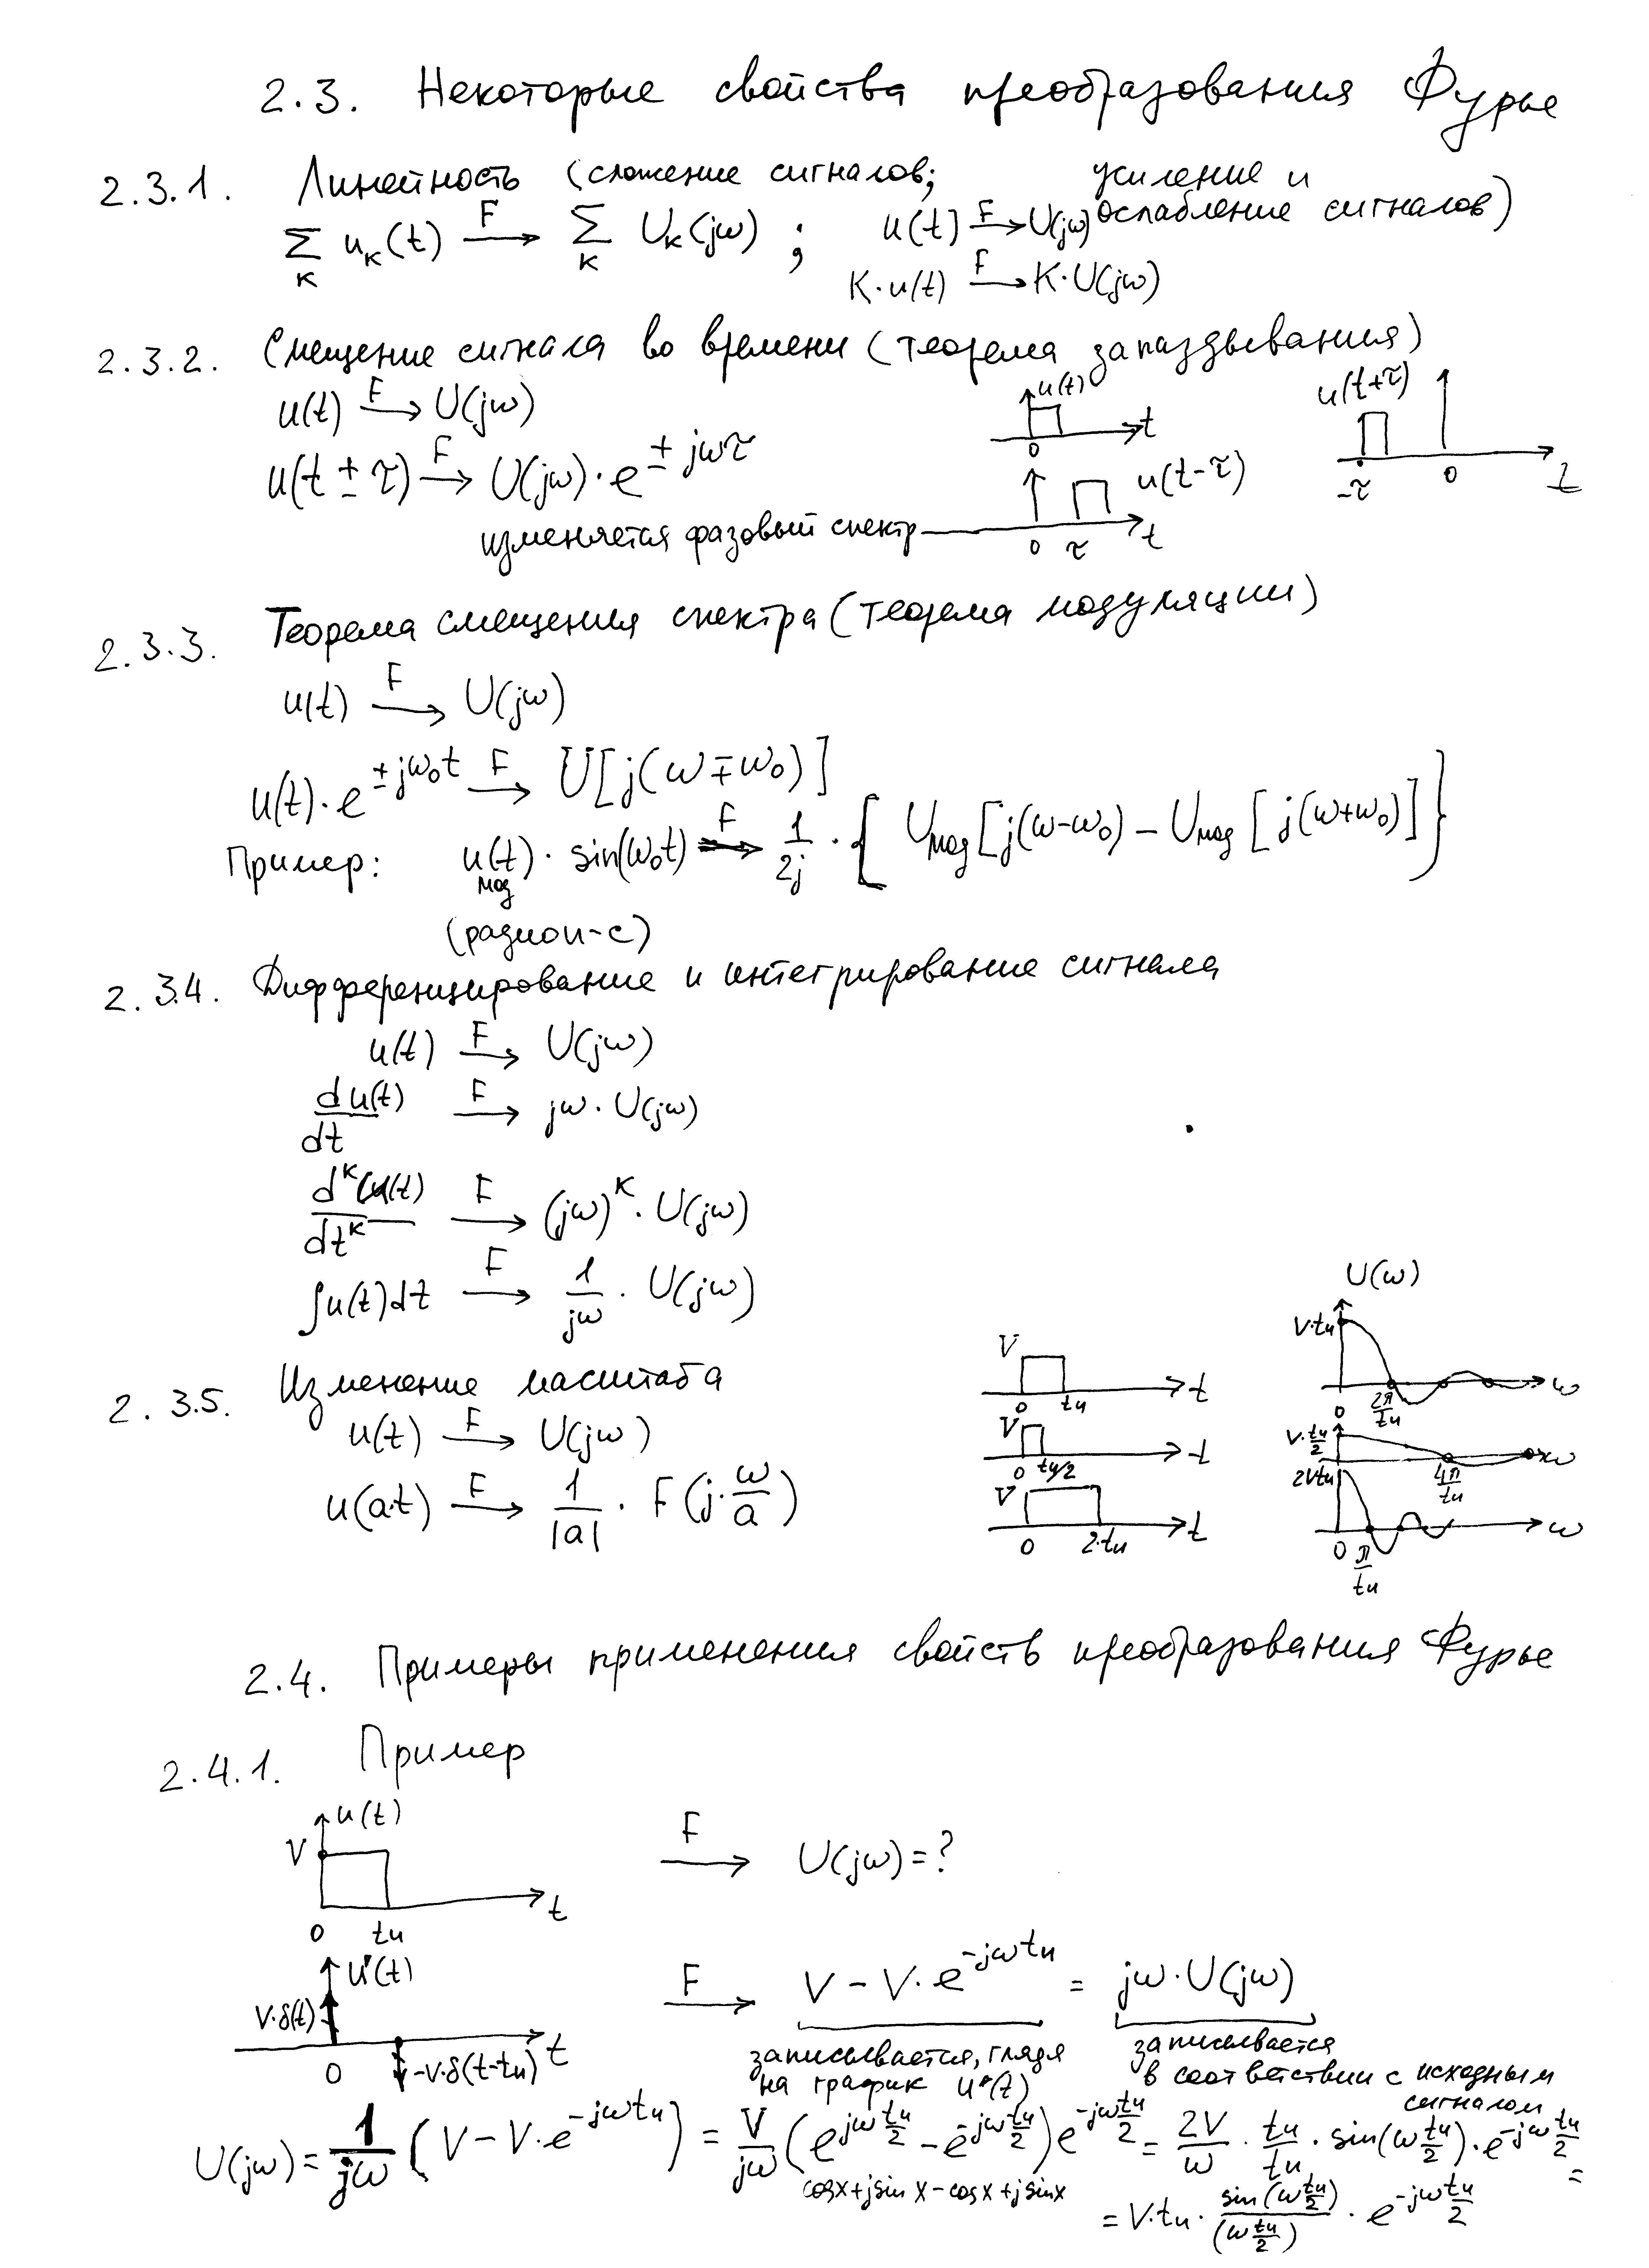 2.3. Некоторые свойства преобразования Фурье
2.3.1. Линейность (сложение сигналов; усиление и ослабление сигналов)
∑ₖ uₖ(t) —F→ ∑ₖ Uₖ(jω) ; u(t) —F→ U(jω)
K·u(t) —F→ K·U(jω)
2.3.2. Смещение сигнала во времени (теорема запаздывания)
u(t) —F→ U(jω)
u(t) 0 t
u(t+τ) -τ 0 t
u(t ± τ) —F→ U(jω)·e^(± jωτ)
u(t-τ) 0 τ t
изменяется фазовый спектр
2.3.3. Теорема смещения спектра (теорема модуляции)
u(t) —F→ U(jω)
u(t)·e^(±jω₀t) —F→ U[j(ω∓ω₀)]
Пример: u_мод(t)· sin(ω₀t) —F→ 1/2j · { U_мод[j(ω-ω₀) - U_мод[j(ω+ω₀)]}
(радиои-с)
2.3.4. Дифференцирование и интегрирование сигнала
u(t) —F→ U(jω)
du(t)/dt —F→ jω·U(jω)
d^к u(t)/dt^к —F→ (jω)^к·U(jω)
∫u(t)dt —F→ 1/jω · U(jω)
2.3.5. Изменение масштаба
u(t) —F→ U(jω)
u(a·t) —F→ 1/|a| · F(j·ω/a)
V 0 tи t
U(ω) V·tи 0 2π/tи ω
V 0 tи/2 t
V·tи/2 4π/tи ω
V 0 2·tи t
2Vtи 0 π/tи ω
2.4. Примеры применения свойств преобразования Фурье
2.4.1. Пример
u(t) V 0 tи t
—F→ U(jω)=?
u'(t) V·δ(t) 0 -V·δ(t-tи) t
—F→ V - V·e^(-jωtи) = jω·U(jω)
записывается, глядя на график u'(t)
записывается в соответствии с исходным сигналом
U(jω) = 1/jω (V - V·e^(-jωtи)) = V/jω (e^(jω tи/2) - e^(-jω tи/2)) e^(-jω tи/2) = 2V/ω · tи/tи · sin(ω tи/2)·e^(-jω tи/2) =
cosx+jsinx-cosx+jsinx
= V·tи · sin(ω tи/2)/(ω tи/2) · e^(-jω tи/2)